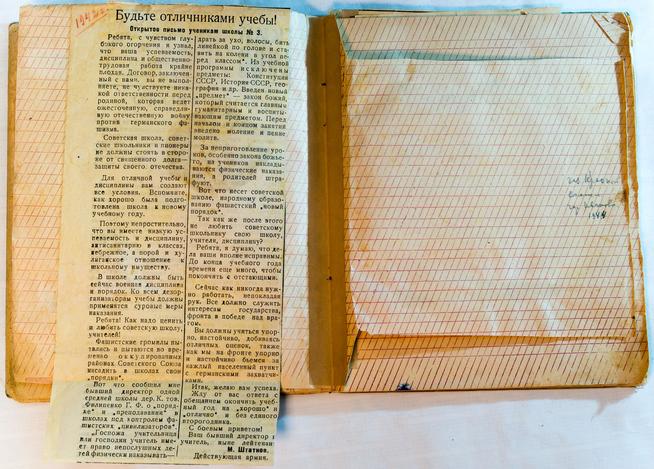 1942г.
Будьте отличниками учебы!
Открытое письмо ученикам школы № 3.
Ребята, с чувством глу-
бокого огорчения я узнал,
что ваша успеваемость,
дисциплина и общественно-
трудовая работа крайне
плохая. Договор, заключен-
ный с вами, вы не выпол-
няете, не чувствуете ника-
кой ответственности перед
родиной, которая ведет
ожесточенную, справедли-
вую отечественную войну
против германского фа-
шизма.
Советская школа, совет-
ские школьники и пионеры
не должны стоять в сторо-
не от священного долга—
защиты своего отечества.
Для отличной учебы и
дисциплины вам создают
все условия. Вспомните,
как хорошо была подго-
товлена школа к новому
учебному году.
Поэтому непростительно,
что вы имеете низкую ус-
певаемость и дисциплину,
антисанитарию в классах,
небрежное, а порой и ху-
лиганское отношение к
школьному имуществу.
В школе должны быть
сейчас военная дисциплина
и порядок. Ко всем дезор-
ганизаторам учебы должны
применятся суровые меры
наказания.
Ребята! Как надо ценить
и любить советскую школу,
учителей!
Фашистские громилы пы-
тались и пытаются во вре-
менно оккупированных
районах Советского Союза
насадить в школах свои
„порядки“.
Вот что сообщил мне
бывший директор одной
средней школы дер. К. тов.
Филипенко Г. Ф. о „поряд-
ке“ и „преподавании“ в
школах под контролем фа-
шистских „цивилизаторов“.
„Госпожа учительница
или господин учитель име-
ет право непослушных де-
тей физически наказывать—
драть за ухо, волосы, бить
линейкой по голове и ста-
вить на колени в угол пе-
ред классом“. Из учебной
программы исключены
предметы: Конституция
СССР, История СССР, гео-
графия и др. Введен новый
„предмет“ — закон божий,
который считается главным
гуманитарным и воспиты-
вающим предметом. Перед
началом и концом занятий
введено моление и пение
молитв.
За неприготовление уро-
ков, особенно закона божье-
го, на учеников наклады-
ваются физические наказа-
ния, а родителей штра-
фуют.
Вот что несет советской
школе, народному образо-
ванию фашистский „новый
порядок“.
Так как же после этого
не любить советскому
школьнику свою школу,
учителя, дисциплину?
Ребята, я думаю, что де-
ла ваши вполне исправимы.
До конца учебного года
времени еще много, чтобы
покончить с отстающими.
Сейчас как никогда нуж-
но работать, непокладая
рук. Все должно служить
интересам государства,
фронта в победе над вра-
гом.
Вы должны учиться упор-
но, настойчиво, добиваясь
отличных оценок, также
как мы на фронте упорно
и настойчиво бьемся за
каждый населенный пункт
с германскими захватчи-
ками.
Итак, желаю вам успеха.
Жду от вас ответа с
обещанием окончить учеб-
ный год на „хорошо“ и
„отлично“ и без единого
второгодника.
С боевым приветом!
Ваш бывший директор и
учитель, ныне лейтенант
М. Штатнов.
Действующая армия.